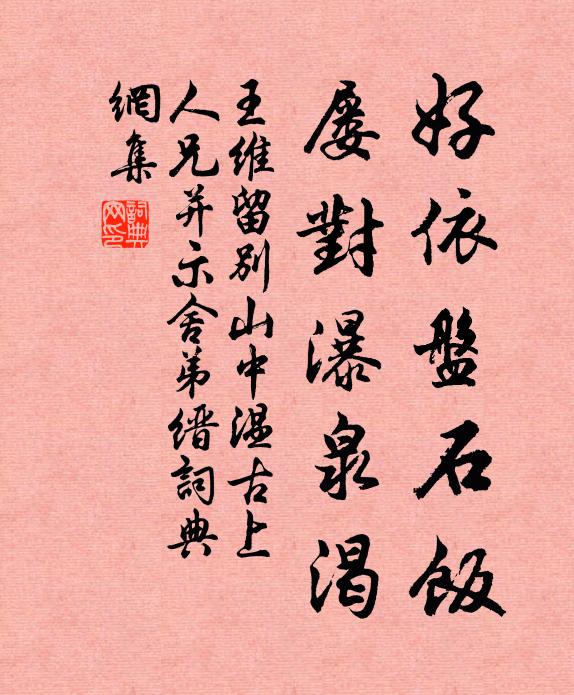 好依盤石飯
屡對瀑泉渴
王維留別山中溫古上
人兄并示舍弟縉詞典
網集
詞典網印